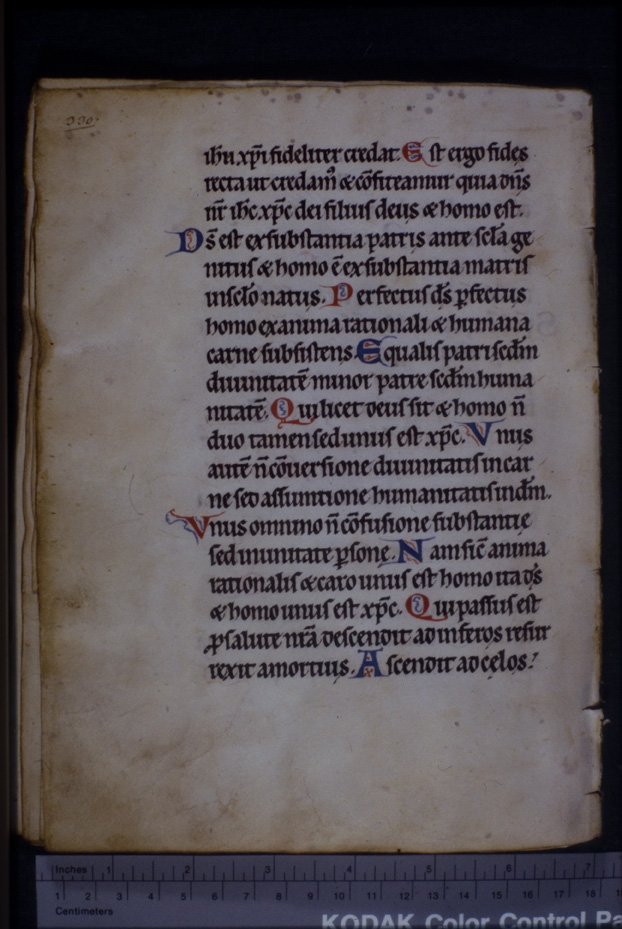 330
ihu xp̄i fideliter credat. Est ergo fides
recta ut credam᷒ & cōfiteamur quia dn̄s
nr̄ ihc xp̄c dei filius deus & homo est.
Ds̄ est ex substantia patris ante sc̄la ge
nitus & homo ē ex substantia matris
in sc̄lo natus. Perfectus ds̄ ꝑfectus
homo ex anima rationali & humana
carne subsistens. Equalis patri sc̄dm
diuinitatē minor patre sc̄dm huma
nitatē. Qui licet deus sit & homo n̄
duo tamen sed unus est xp̄c. Vnus
autē n̄ cōuersione diuinitatis in car
ne sed assumtione humanitatis in dm̄.
Vnus omnino n̄ cōfusione substantie
sed in unitate ꝑsone. Nam sic̄ anima
rationalis & caro unus est homo ita ds̄
& homo unus est xp̄c. Qui passus est
ꝓ salute nr̄a descendit ad inferos resur
rexit a mortuis. Ascendit ad celos.
Inches 1 2 3 4 5 6 7
1 2 3 4 5 6 7 8 9 10 11 12 13 14 15 16 17 18
Centimeters
KODAK Color Control Pa